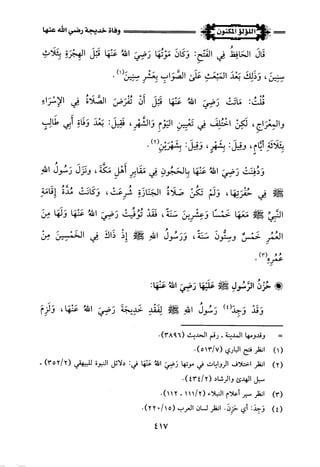 وفاة خديجة رضي الله عنها
اللؤلؤ المكنون
قَالَ الحَافِظُ فِي الفَتْحِ: وَكَانَ مَوْتُهَا رَضِيَ اللهُ عَنْهَا قَبْلَ الهِجْرَةِ بِثَلَاثِ
سِنِينَ، وَذَلِكَ بَعْدَ المَبْعَثِ عَلَى الصَّوَابِ بِعَشْرِ سِنِينَ(١).
قُلْتُ: مَاتَتْ رَضِيَ اللهُ عَنْهَا قَبْلَ أَنْ تُفْرَضَ الصَّلَاةُ فِي الإِسْرَاءِ
والمِعْرَاجِ، لَكِنْ اخْتُلِفَ فِي تَعْيِينِ اليَوْمِ وَالشَّهْرِ، فَقِيلَ: بَعْدَ وَفَاةِ أَبِي طَالِبٍ
بِثَلَاثَةِ أَيَّامٍ، وقِيلَ: بِشَهْرٍ، وَقِيلَ: بِشَهْرَيْنِ(٢).
وَدُفِنَتْ رَضِيَ اللهُ عَنْهَا بِالحَجُونِ فِي مَقَابِرِ أَهْلِ مَكَّةَ، وَنَزَلَ رَسُولُ اللهِ
ﷺ فِي حُفْرَتِهَا، وَلَمْ تَكُنْ صَلَاةُ الجَنَازَةِ شُرِعَتْ، وَكَانَتْ مُدَّةُ إِقَامَةِ
النَّبِيِّ ﷺ مَعَهَا خَمْسًا وَعِشْرِينَ سَنَةً، فَقَدْ تُوُفِّيَتْ رَضِيَ اللهُ عَنْهَا وَلَهَا مِنَ
العُمُرِ خَمْسٌ وسِتُّونَ سَنَةً، وَرَسُولُ اللهِ ﷺ إِذْ ذَاكَ فِي الخَمْسِينَ مِنْ
عُمُرِهِ(٣).
حُزْنُ الرَّسُولِ ﷺ عَلَيْهَا رَضِيَ اللهُ عَنْهَا:
وَقَدْ وَجِدَ(٤) رَسُولُ اللهِ ﷺ لِفَقْدِ خَدِيجَةَ رَضِيَ اللهُ عَنْهَا، وَلَزِمَ
= وقدومها المدينة ـ رقم الحديث (٣٨٩٦).
(١) انظر فتح الباري (٥١٣/٧).
(٢) انظر اختلاف الروايات في موتها رَضِيَ اللهُ عَنْهَا في: دلائل النبوة للبيهقي (٣٥٢/٢) ـ
سبل الهدى والرشاد (٤٣٤/٢).
(٣) انظر سير أعلام النبلاء (١١١/٢ ـ ١١٢).
(٤) وَجِدَ: أي حَزِنَ. انظر لسان العرب (٢٢٠/١٥).
٤١٧